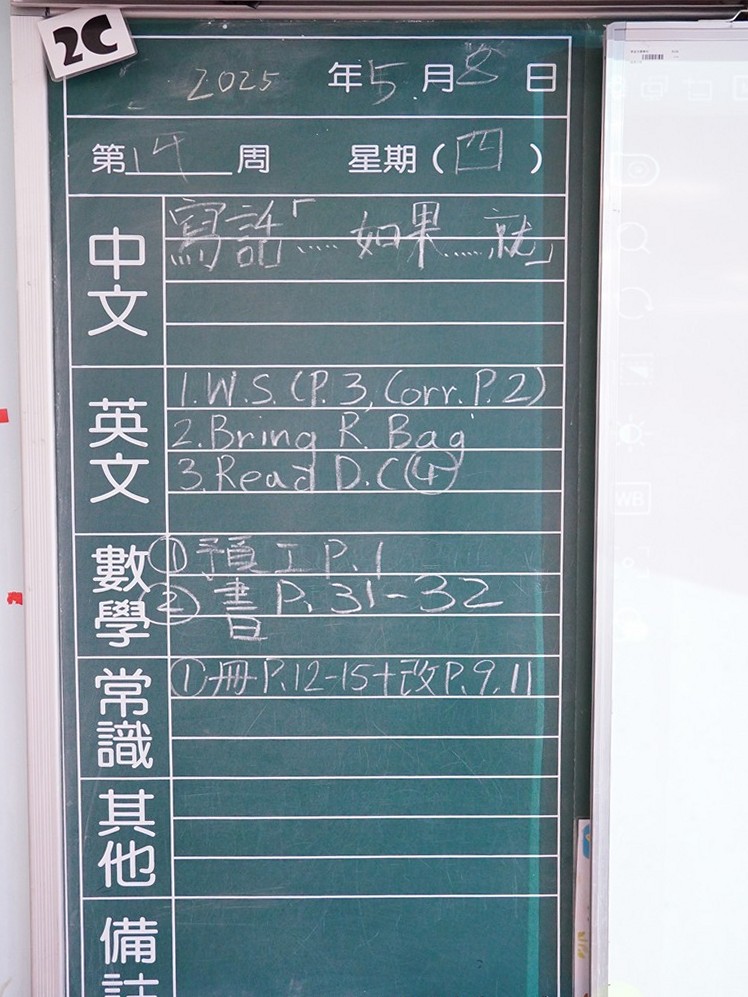 2C
2025 年 5 月 8 日
第 14 周 星期（四）
中文
寫話「…… 如果……就」
英文
1.W.S. (P.3, Corr. P.2)
2.Bring R. Bag
3.Read D.C ④
數學
① 預工 P.1
② 書 P.31-32
常識
①冊 P.12-15+改P.9,11
其他
備註
WB